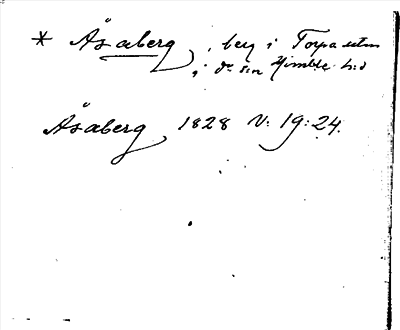 * Åsaberg, berg i Torpa utm
i d:o sn Himble h:d
Åsaberg 1828 V: 19:24.